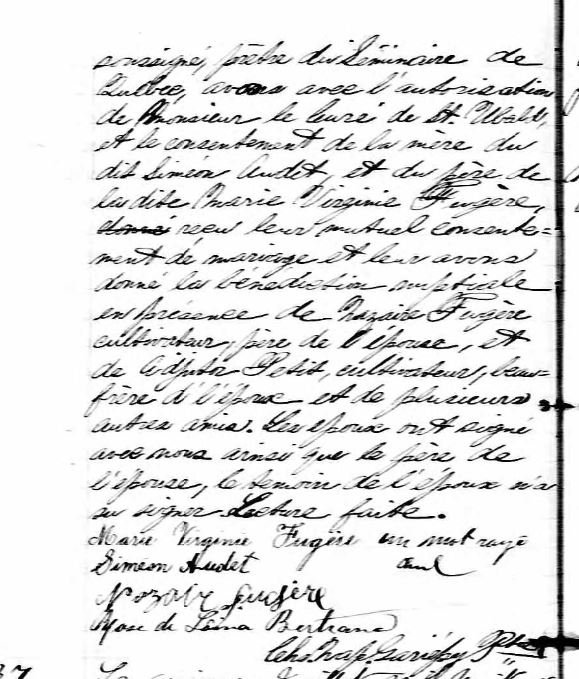 soussigné, prêtre du Séminaire de
Québec, avons avec l'autorisation
de Monsieur le Curé de St. Ubald,
et le consentement de la mère du
dit Siméon Audet, et du père de
la dite Marie Virginie Fugère,
donné reçu leur mutuel consente=
ment de mariage et leur avons
donné la bénédiction nuptiale
en présence de Nazaire Fugère
cultivateur, père de l'épouse, et
de Adjutor Petit, cultivateur, beau=
frère de l'époux et de plusieurs
autres amis. Les époux ont signé
avec nous ainsi que le père de
l'épouse, le temoin de l'époux n'a
su signer Lecture faite.
Marie Virginie Fugère un mot rayé
Siméon Audet nul
Nozair Fugère
Rose de Lima Bertrand
Chs. Nap. Gariépy Ptre
37